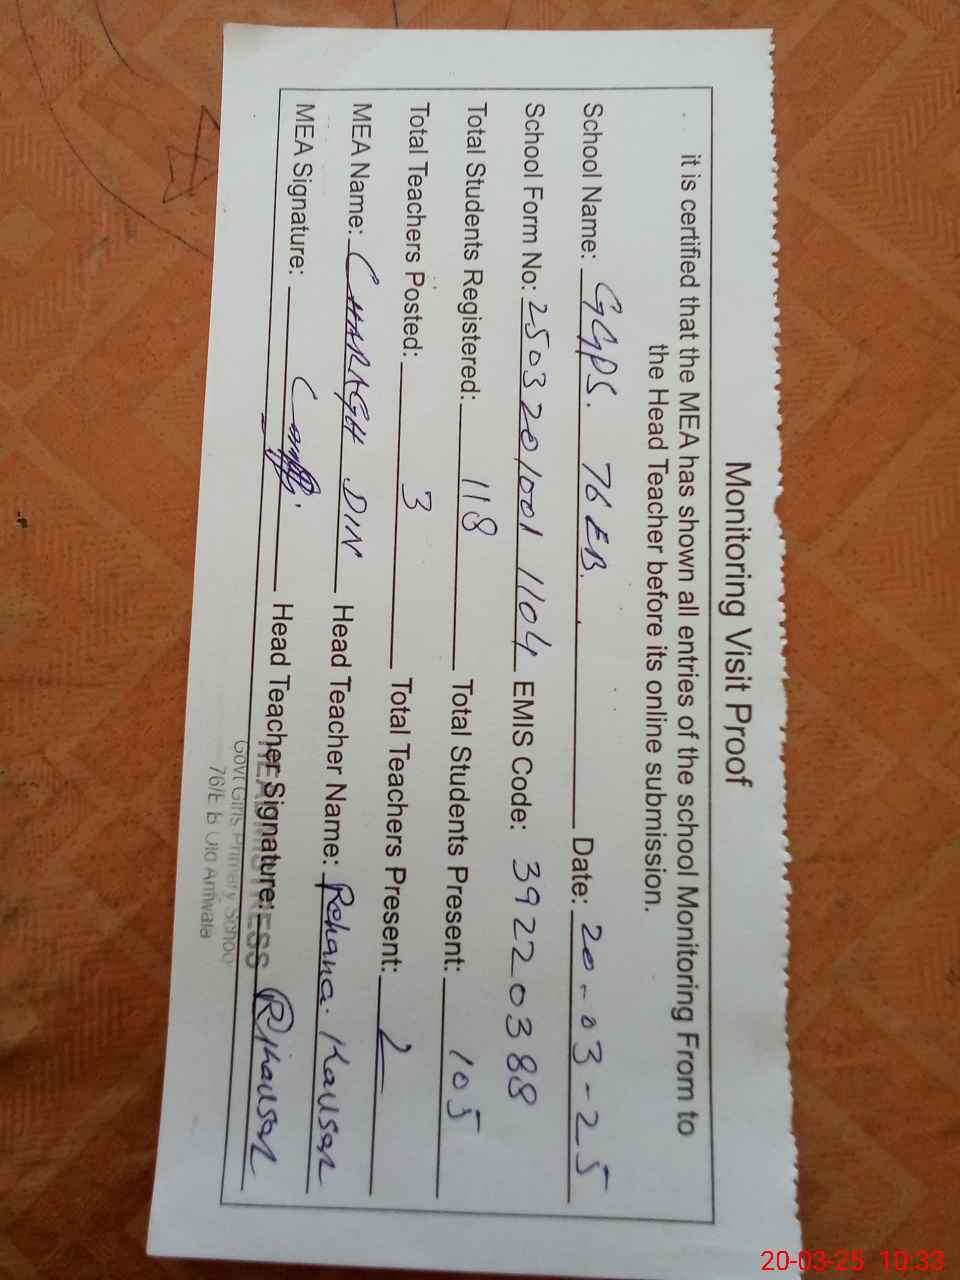 Monitoring Visit Proof
it is certified that the MEA has shown all entries of the school Monitoring From to
the Head Teacher before its online submission.
School Name: GGPS. 76 EB. Date: 20-03-25
School Form No: 2503201001 1104 EMIS Code: 39220388
Total Students Registered: 118 Total Students Present: 105
Total Teachers Posted: 3 Total Teachers Present: 2
MEA Name: CHARAGH DIN Head Teacher Name: Rehana Kausar
MEA Signature: Head Teacher Signature: RKausar
HEADMISTRESS
Govt Girls Primary School
76/E b Old Arifwala
20-03-25 10:33